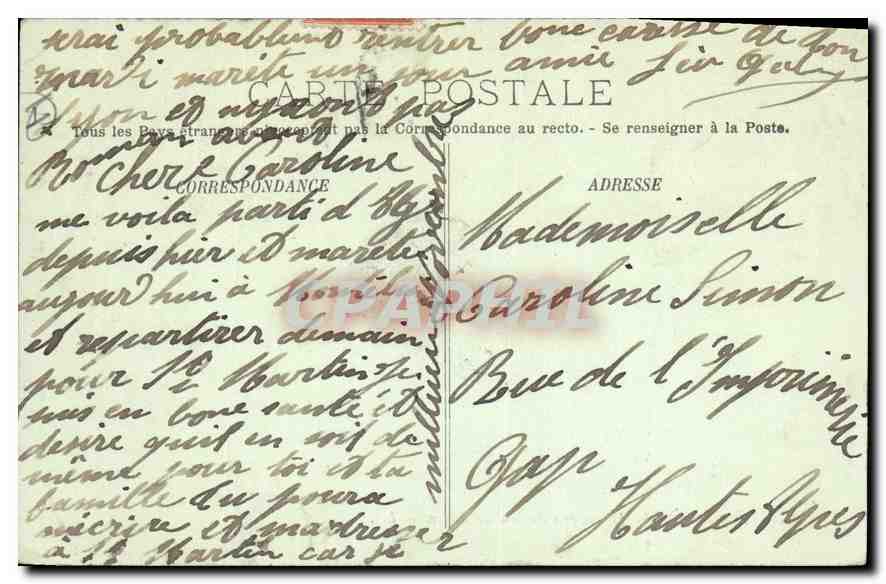 serai probablent rentrer bone caresse de ton
mari marete un jour amie
CARTE POSTALE
Lyon et pas
* Tous les Pays étrangers n'acceptent pas la Correspondance au recto. - Se renseigner à la Poste.
avant
Chere Caroline
CORRESPONDANCE
me voila parti d
depuis hier et marete
aujourdhui à
et repartirer demain
pour St Martin je
suis en bone santé et
desire quil en soit de
même pour toi et ta
famille tu poura
mecrire et madresser
à St Martin car je
ADRESSE
Mademoiselle
Caroline Simon
Rue de l'Imprimerie
Gap
Hautes Alpes
CPAPHIL